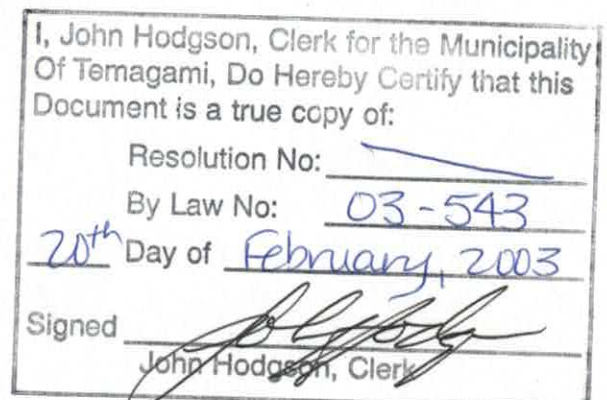 I, John Hodgson, Clerk for the Municipality
Of Temagami, Do Hereby Certify that this
Document is a true copy of:
Resolution No:
By Law No: 03-543
20th Day of February, 2003
Signed John Hodgson
John Hodgson, Clerk